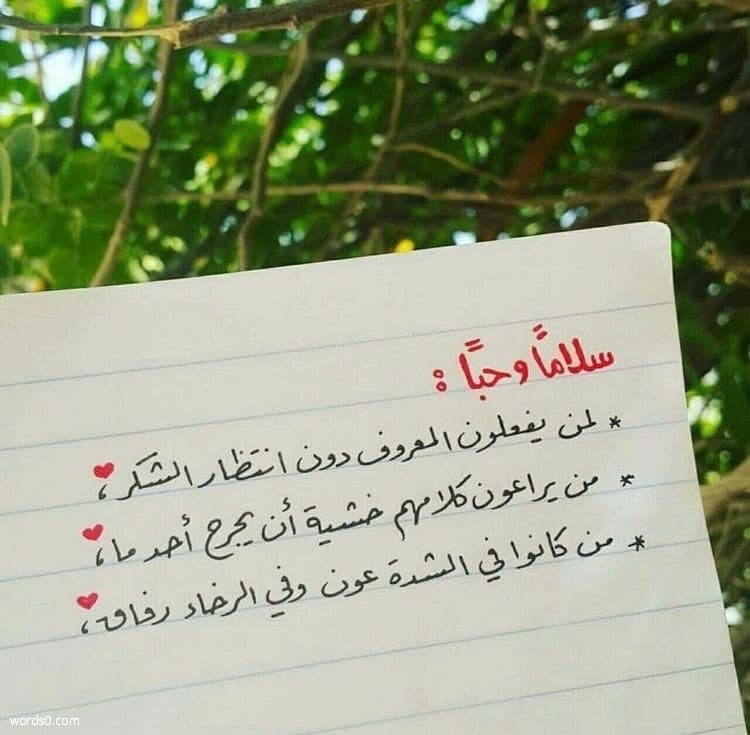 سلامًا وحبًا :
* لمن يفعلون المعروف دون انتظار الشكر ،
* من يراعون كلامهم خشية أن يجرح أحد ما ،
* من كانوا في الشدة عون وفي الرخاء رفاق ،
words0.com